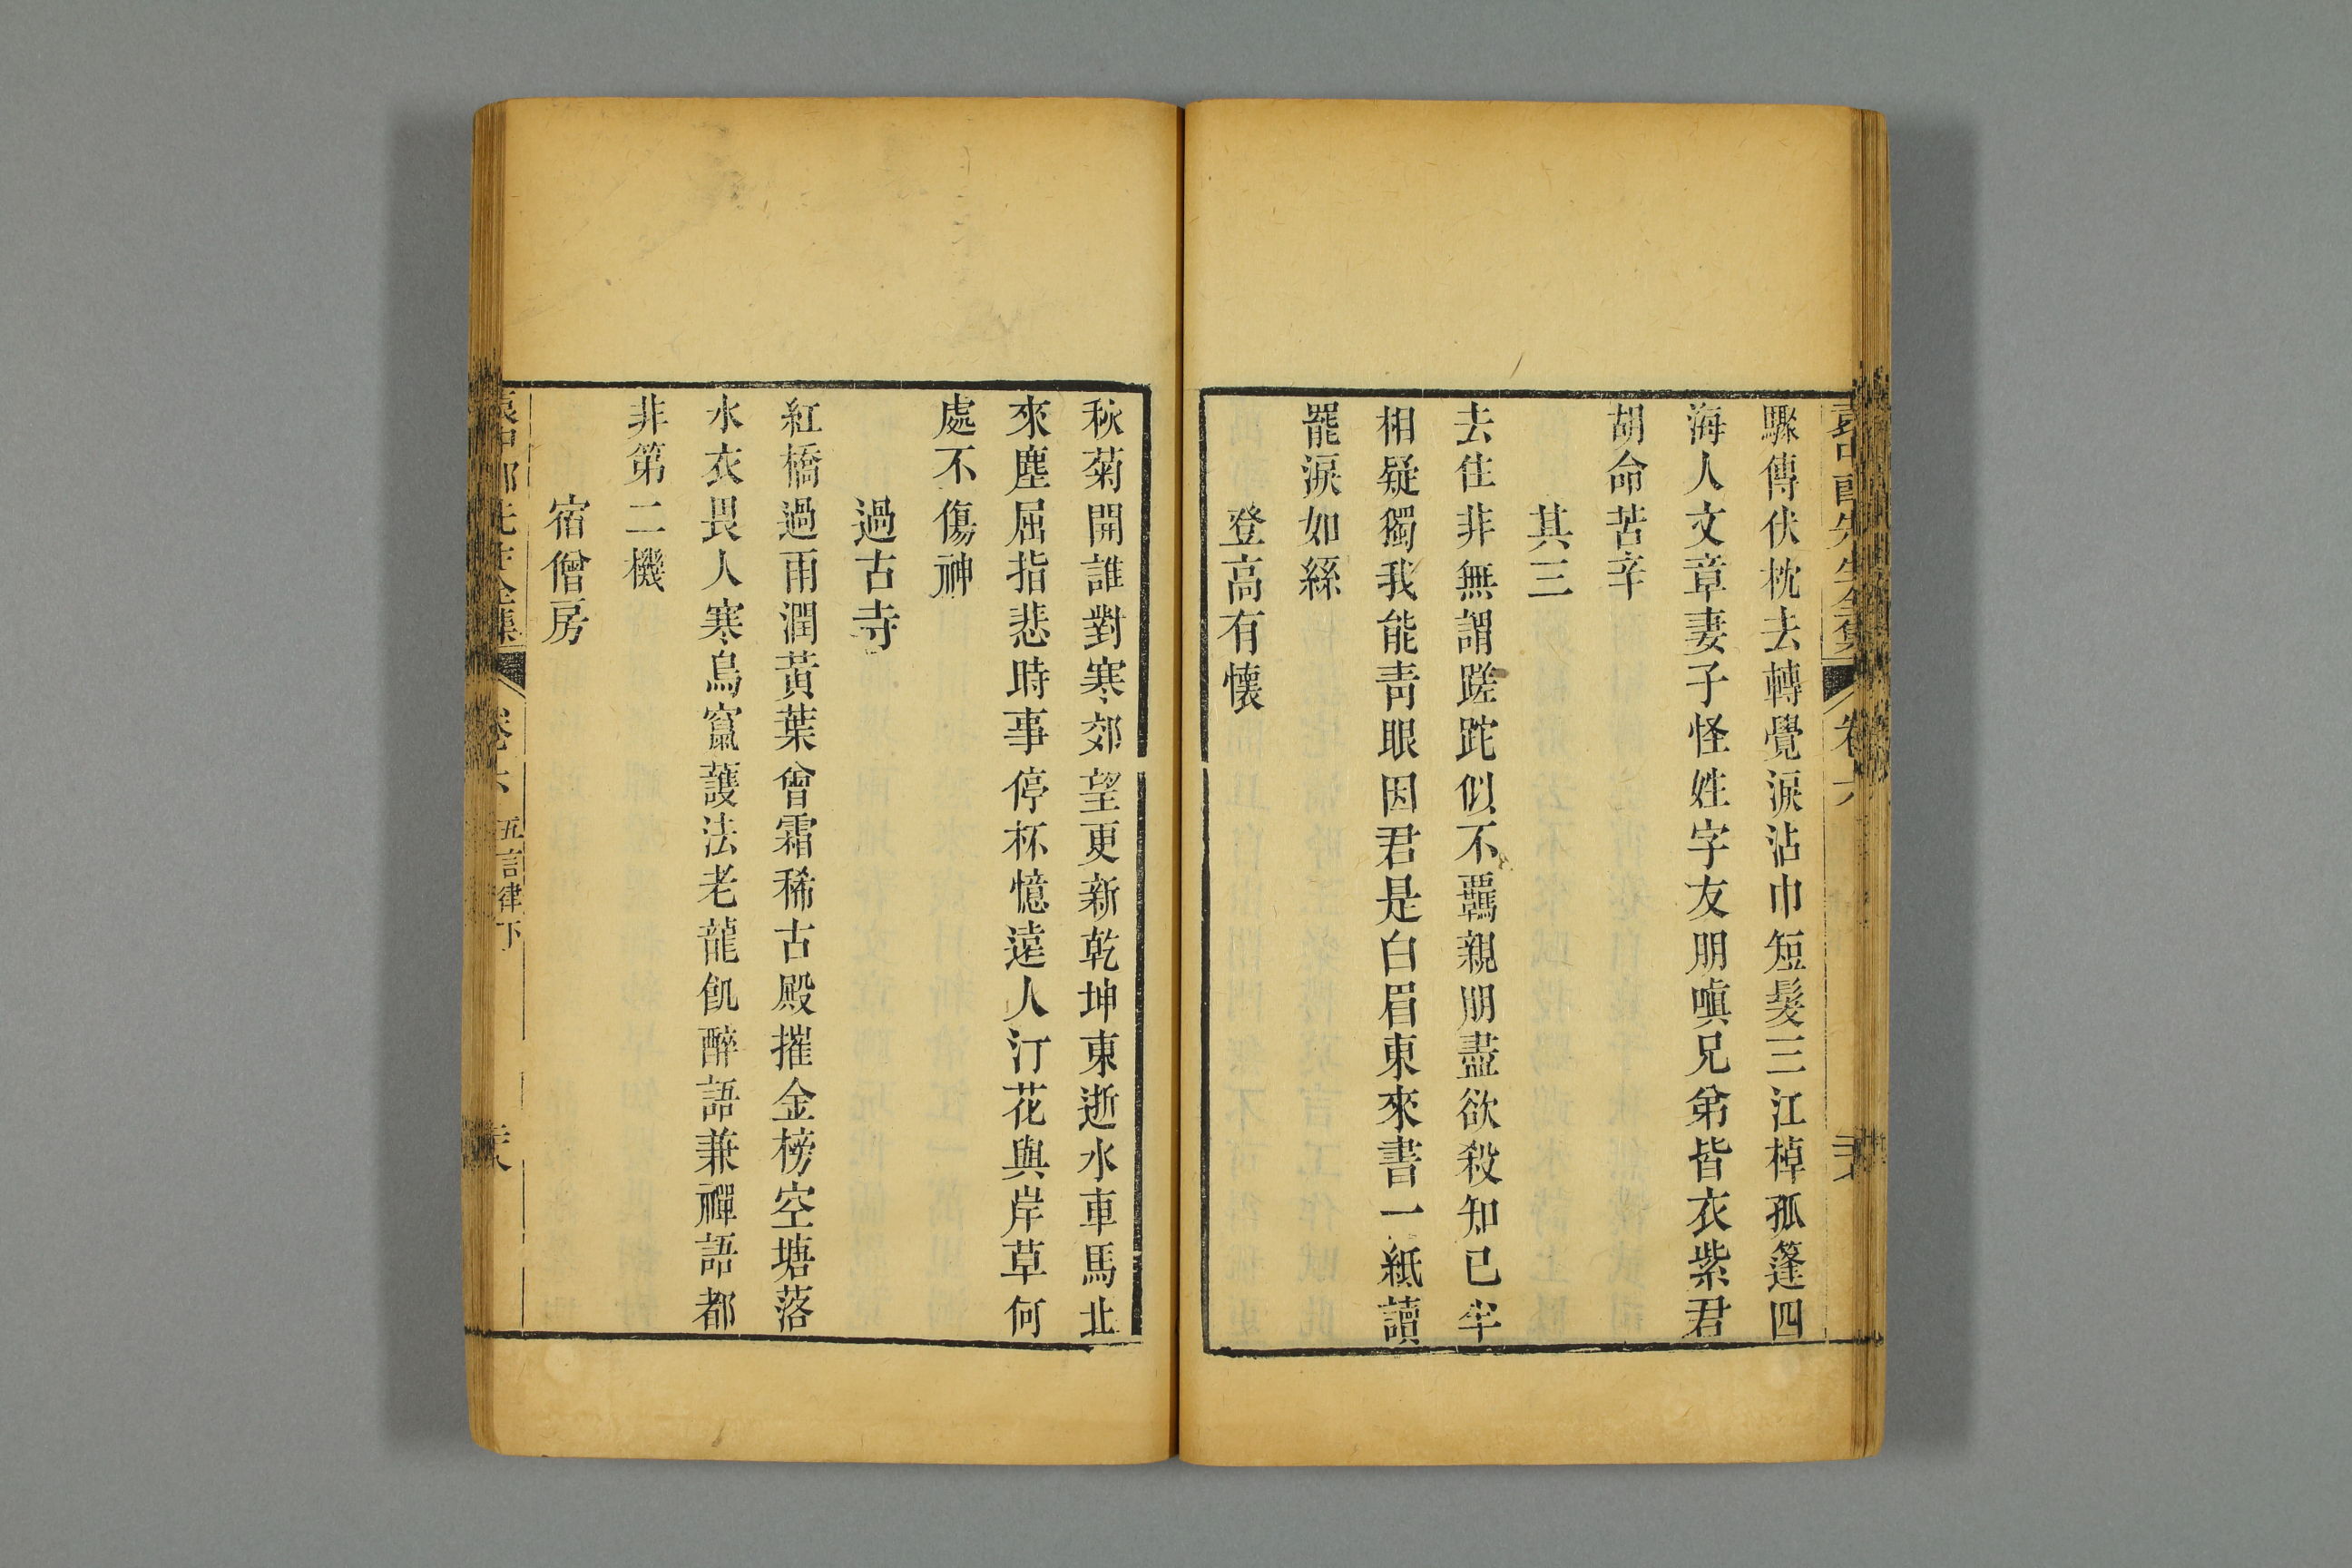 驟傳伏枕去轉覺淚沾巾短髮三江棹孤篷四
海人文章妻子怪姓字友朋嗔兄弟皆衣紫君
胡命苦辛
其三
去住非無謂蹉跎似不羈親朋盡欲殺知己半
相疑獨我能靑眼因君是白眉東來書一紙讀
罷淚如絲
登高有懷
秋菊開誰對寒郊望更新乾坤東逝水車馬北
來塵屈指悲時事停杯憶遠人汀花與岸草何
處不傷神
過古寺
紅橋過雨潤黃葉曾霜稀古殿摧金榜空塘落
水衣畏人寒鳥竄護法老龍飢醉語兼禪語都
非第二機
宿僧房
袁中郎先生全集 卷六 五言律下